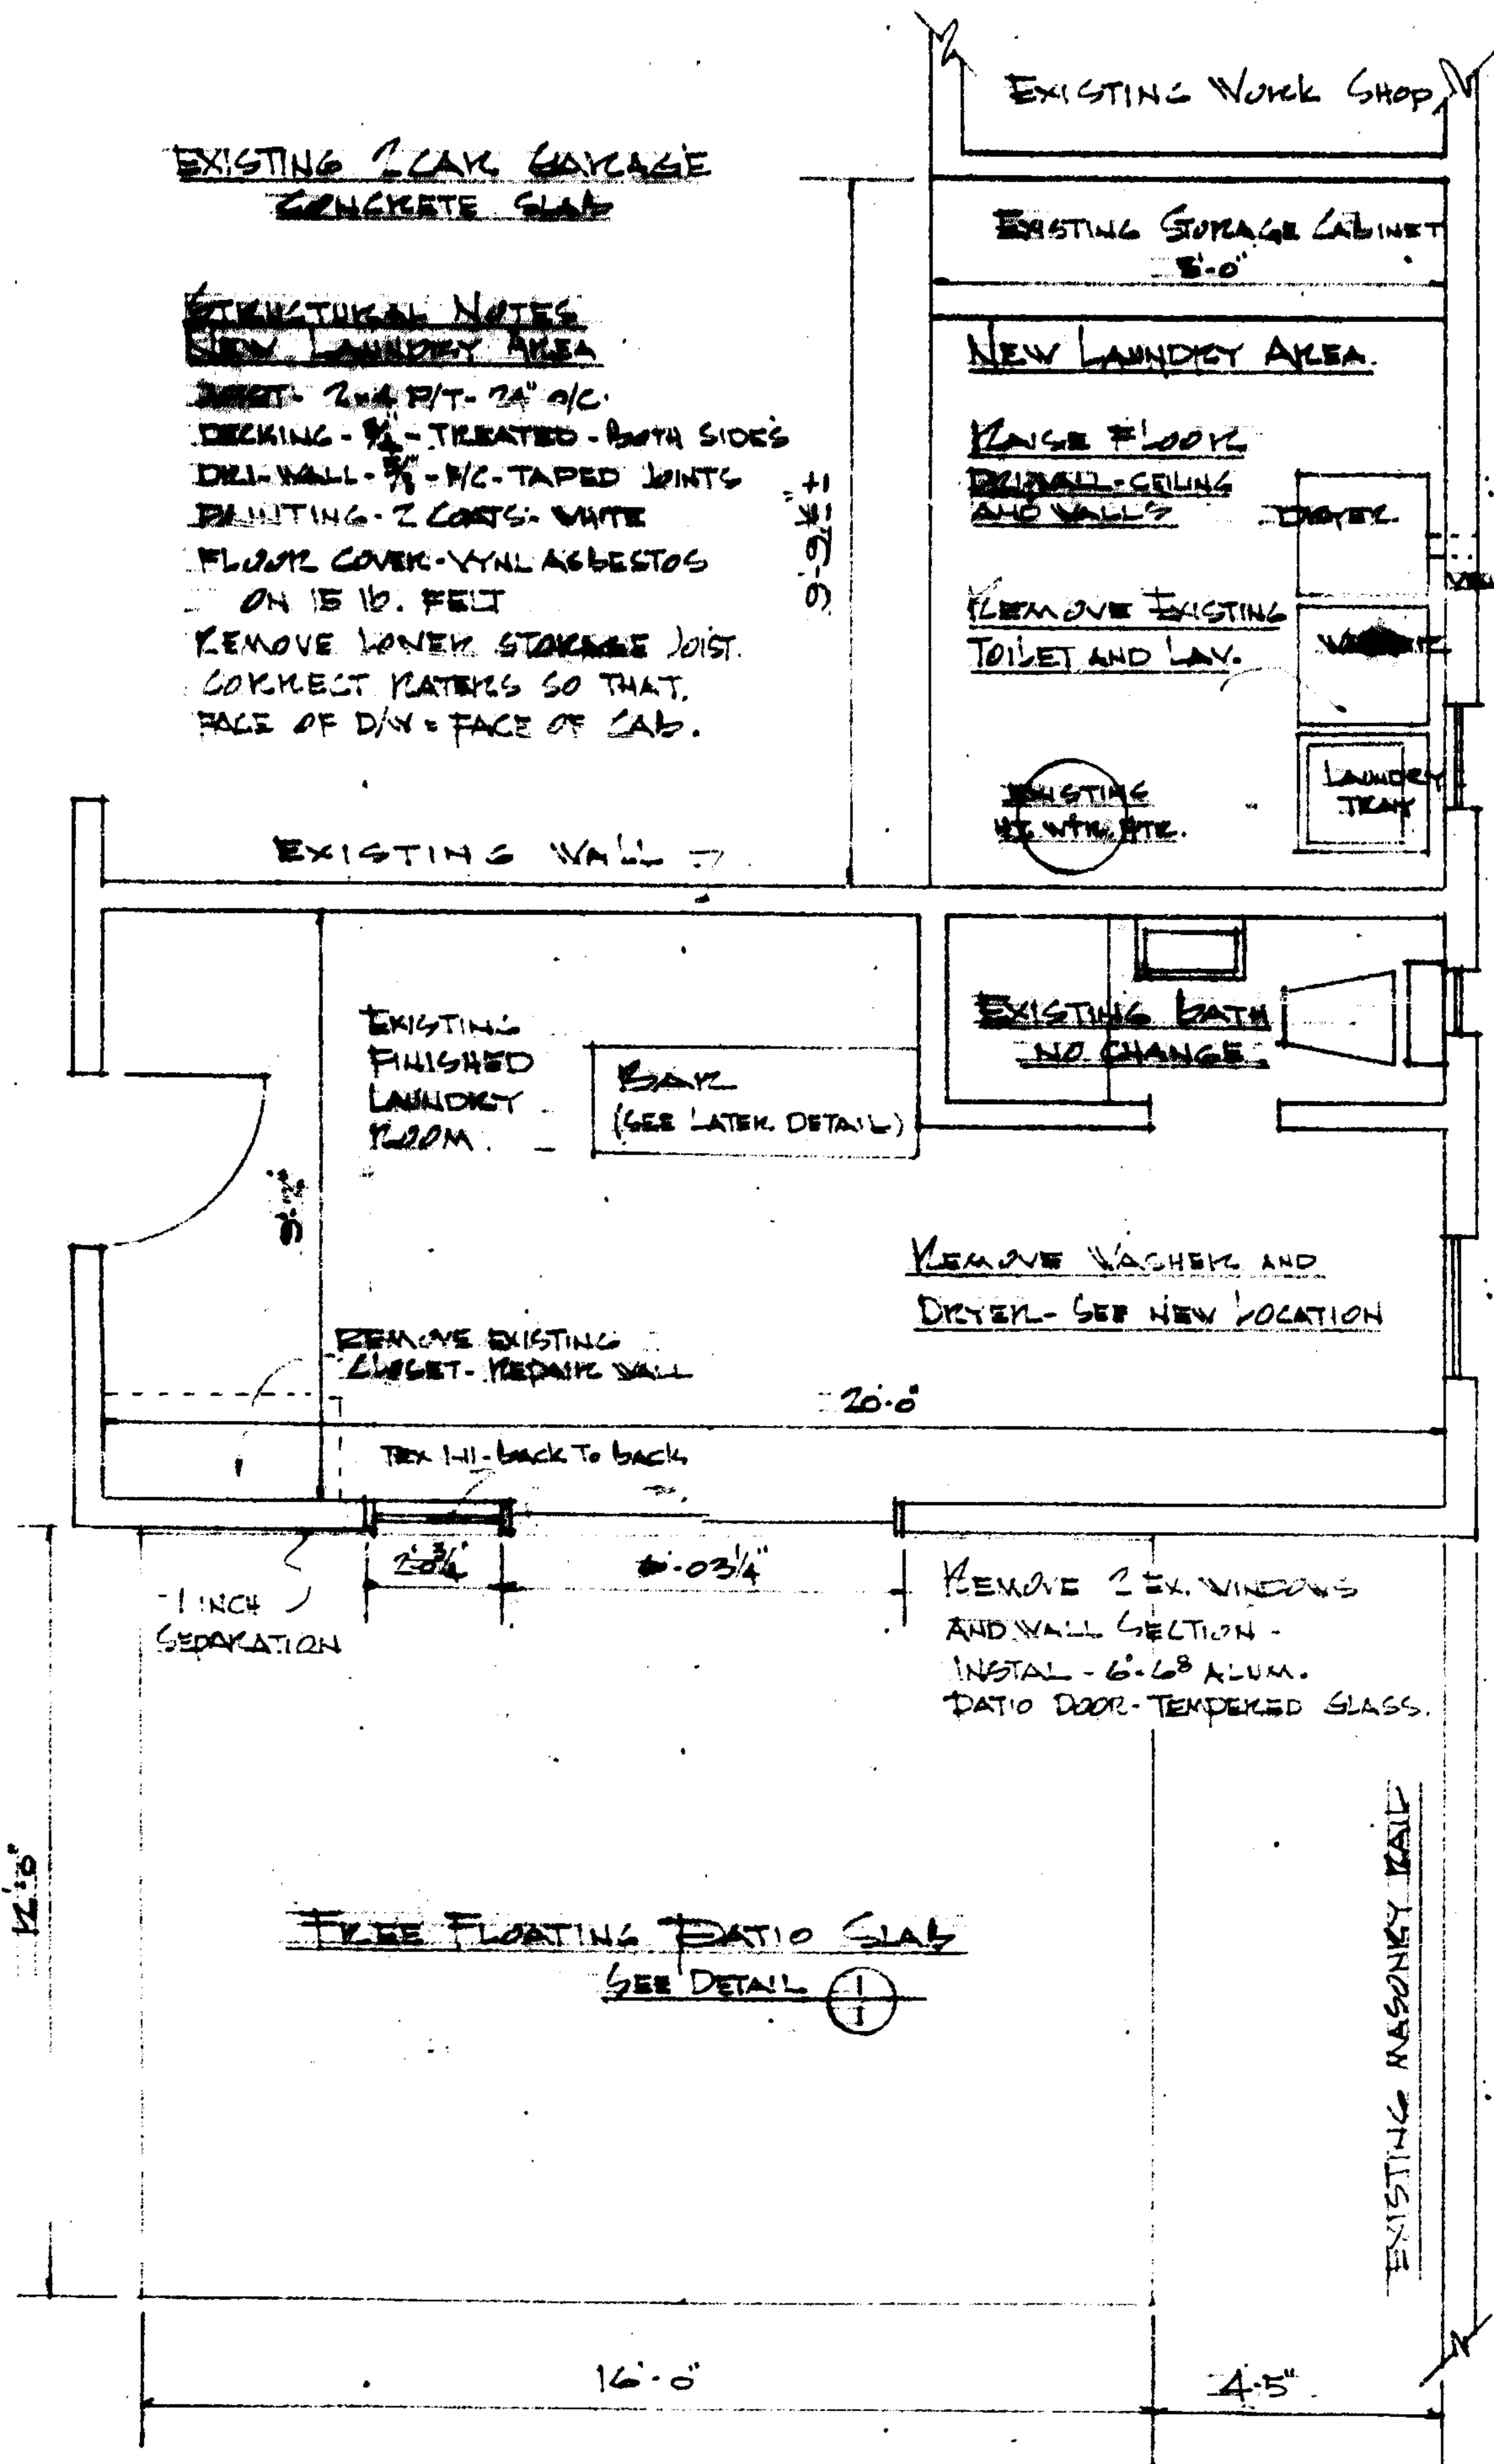 EXISTING WORK SHOP
EXISTING 2 CAR GARAGE
CONCRETE SLAB
EXISTING STORAGE CABINET
8'-0"
STRUCTURAL NOTES
NEW LAUNDRY AREA
2x4 P/T - 24" O/C.
DECKING - 3/4" - TREATED - BOTH SIDES
DRI-WALL - 5/8" - F/C - TAPED JOINTS
PAINTING - 2 COATS - WHITE
FLOOR COVER - VYNL ASBESTOS
ON 15 lb. FELT
REMOVE LOWER STORAGE JOIST.
CORRECT RATERS SO THAT.
FACE OF D/W = FACE OF CAB.
NEW LAUNDRY AREA.
RAISE FLOOR
DRIWALL - CEILING
AND WALLS
DRYER.
REMOVE EXISTING
TOILET AND LAV.
WASHER
LAUNDRY
TRAY
EXISTING
HT. WTR. HTR.
EXISTING WALL
EXISTING
FINISHED
LAUNDRY
ROOM.
BAR
(SEE LATER DETAIL)
EXISTING BATH
NO CHANGE.
9'-2"
REMOVE WASHER AND
DRYER - SEE NEW LOCATION
REMOVE EXISTING
CLOSET - REPAIR WALL
20'-0"
TEX 1-11 - back To back
2'-0 3/4"
-03 1/4"
1 INCH
SEPARATION
REMOVE 2 EX. WINDOWS
AND WALL SECTION -
INSTAL - 6'-6⁸ ALUM.
PATIO DOOR - TEMPERED GLASS.
12'-0"
FREE FLOATING PATIO SLAB
SEE DETAIL 1
1
EXISTING MASONRY RAIL
16'-0"
4'-5"